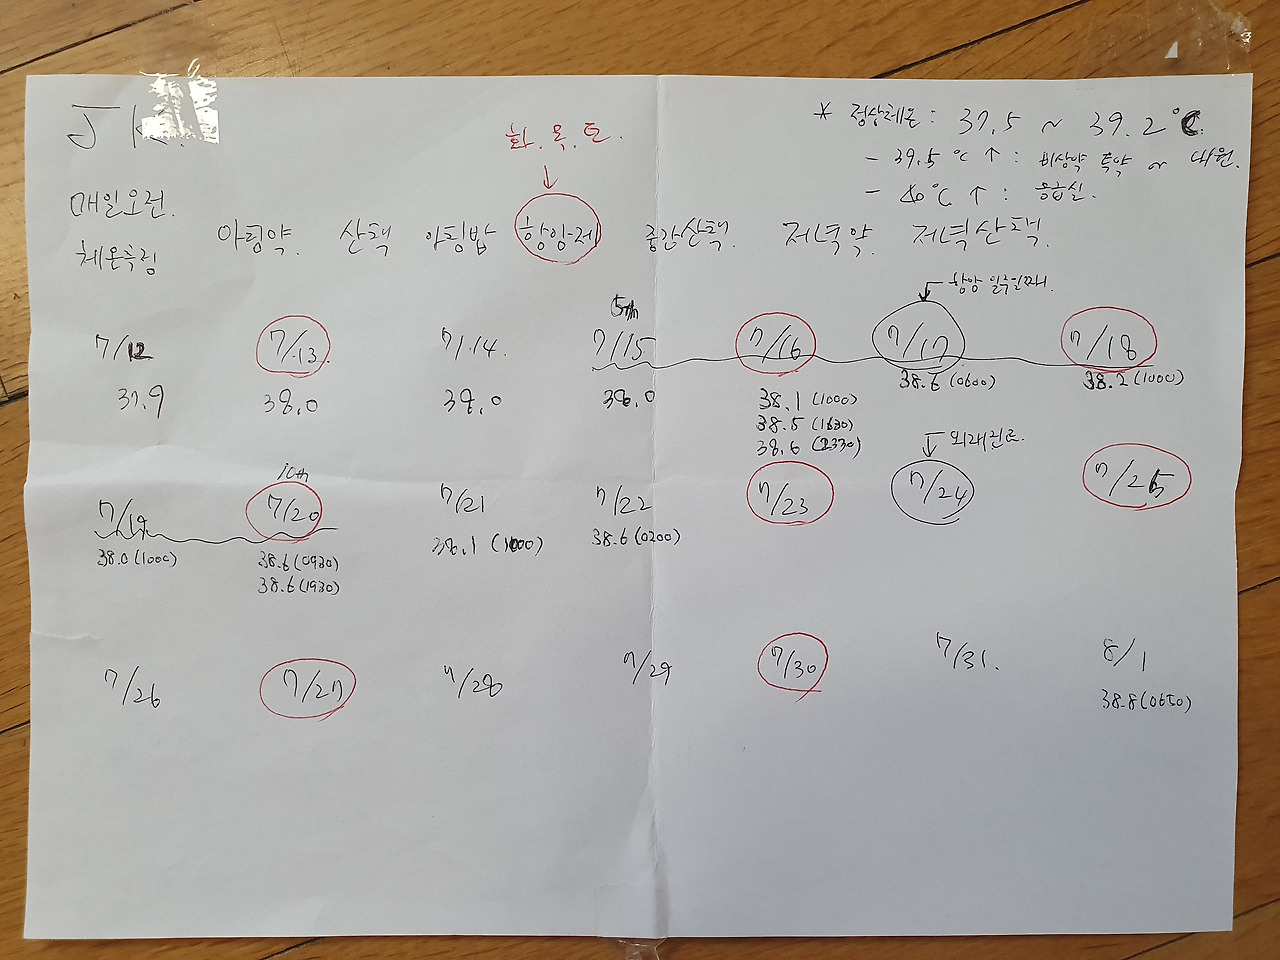 JK.
화.목.토.
* 정상체온: 37.5 ~ 39.2℃.
- 39.5℃ ↑ : 비상약 투약 ~ 내원.
- 40℃ ↑ : 응급실.
매일오전.
체온측정
아침약. 산택 아침밥 항암제 중간산택. 저녁약. 저녁산택.
항암 일주일째.
5th
7/12 7/13. 7/14. 7/15 7/16 7/17 7/18
37.9 38.0 38.0 38.0 38.1 (1000) 38.6 (0600) 38.2 (1000)
38.5 (1630)
38.6 (2330)
외래진료.
10th
7/19 7/20 7/21 7/22 7/23 7/24 7/25
38.0 (1000) 38.6 (0930) 38.1 (1000) 38.6 (0200)
38.6 (1930)
7/26 7/27 7/28 7/29 7/30 7/31. 8/1
38.8 (0650)